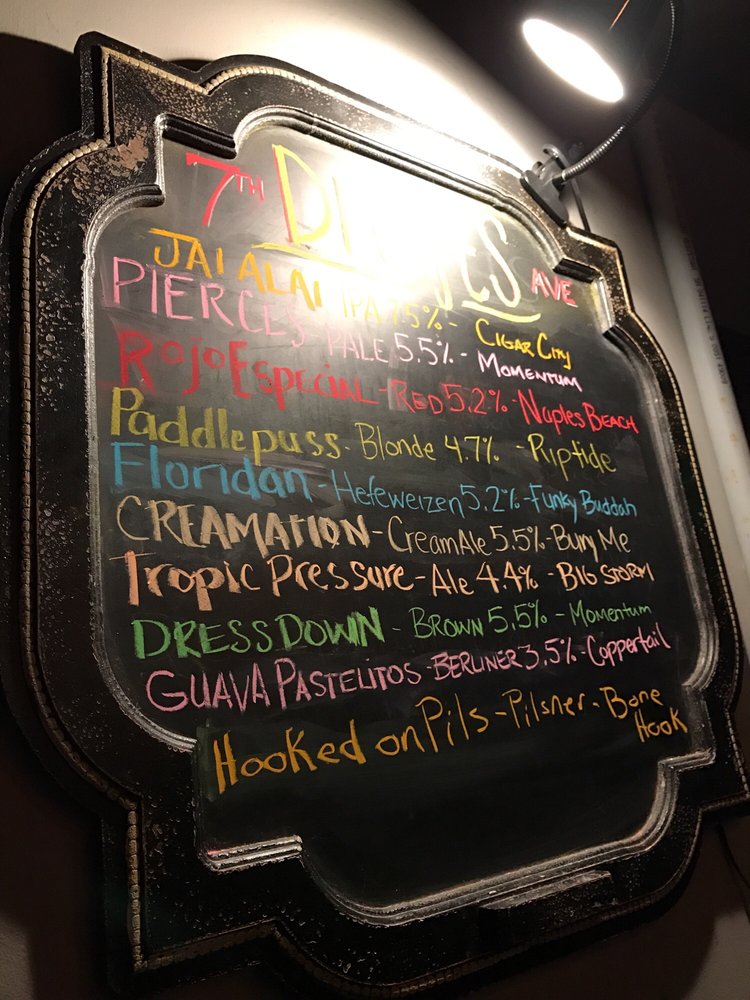 7TH AVE
JAI ALAI IPA 7.5% - CIGAR CITY
PIERCES - PALE 5.5% - MOMENTUM
Rojo Especial - RED 5.2% - Naples Beach
Paddlepuss - Blonde 4.7% - Riptide
Floridan - Hefeweizen 5.2% - Funky Buddah
CREAMATION - Cream Ale 5.5% - Bury Me
Tropic Pressure - Ale 4.4% - BIG STORM
DRESS DOWN - BROWN 5.5% - Momentum
GUAVA PASTELITOS - BERLINER 3.5% - Coppertail
Hooked on Pils - Pilsner - Bone
Hook